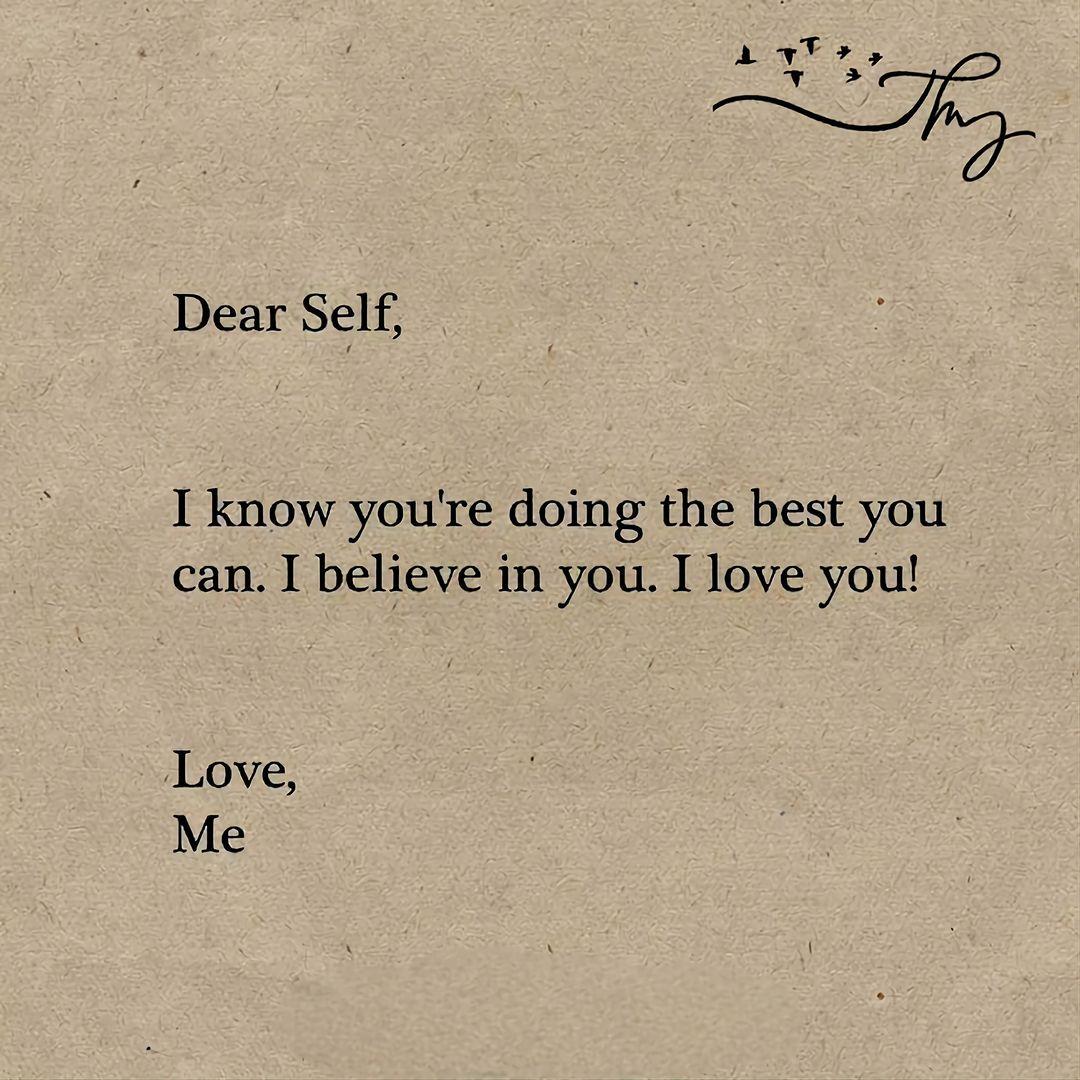 Thuy
Dear Self,
I know you're doing the best you
can. I believe in you. I love you!
Love,
Me